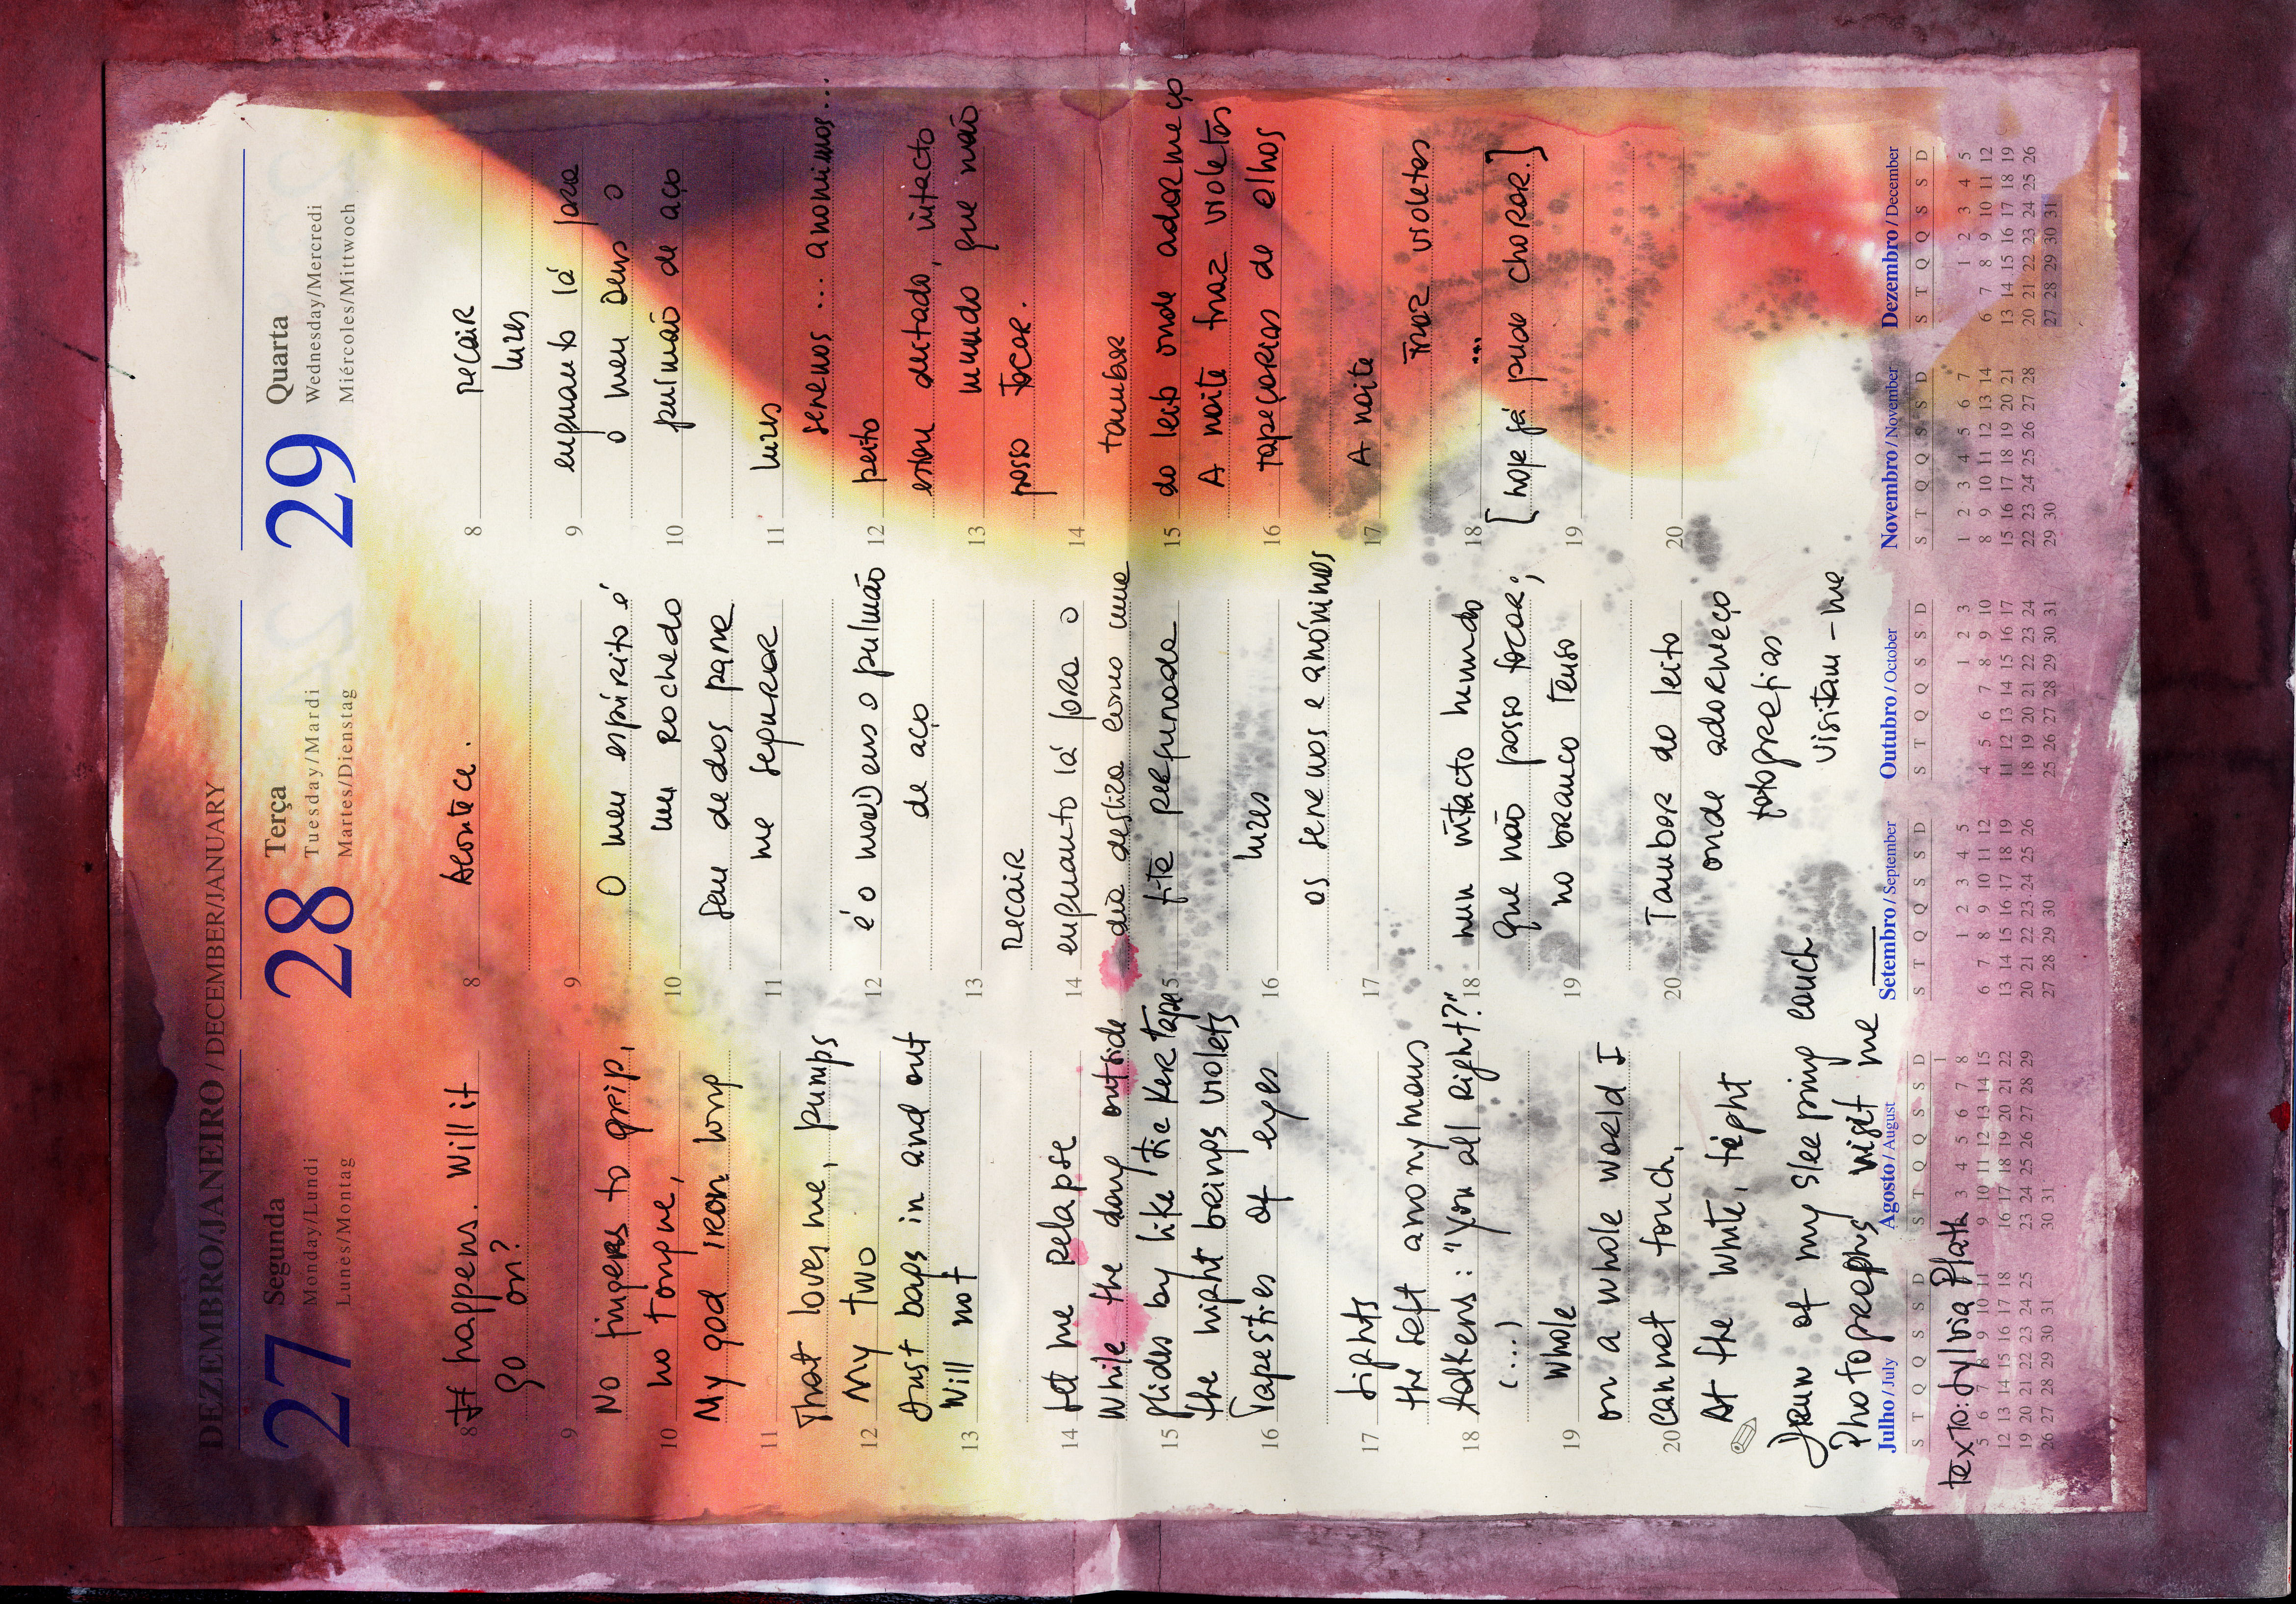 DEZEMBRO/JANEIRO / DECEMBER/JANUARY
27 Segunda
Monday/Lundi
Lunes/Montag
8 It happens. Will it
go on?
9
No fingers to grip,
no tongue,
10
My god iron long
11
That loves me, pumps
My two
12
Dust bags in and out
Will not
13
Let me relapse
14
While the day outside
glides by like ticker tape
15
the night brings violets
Tapestries of eyes
16
Lights
17
the soft anonymous
talkers: "You all Right?"
18
(....)
Whole
19
on a whole world I
20 cannot touch,
At the white, tight
Drum of my sleeping couch
Photographs visit me
texto: Sylvia Plath
28 Terça
Tuesday/Mardi
Martes/Dienstag
Acontece.
8
9
O meu espírito é
um rochedo
10
sem dedos para
me segurar
11
é o meu Deus o pulmão
12
de aço
13
recair
enquanto lá fora o
14
dia desliza como uma
fita perfurada
15
luzes
16
os serenos e anónimos
17
num intacto mundo
18
que não posso tocar;
no branco tenso
19
Tambor do leito
20
onde adormeço
fotografias
visitam-me
29 Quarta
Wednesday/Mercredi
Miércoles/Mittwoch
recair
8
luzes
enquanto lá fora
9
o meu Deus o
pulmão de aço
10
luzes
11
serenos... anonimos...
peito
12
estou deitado, intacto
mundo que não
13
posso tocar.
14
tambor
do leito onde adormeço
15
A noite traz violetas
tapeçarias de olhos
16
A noite
17
traz violetas
...
18
[hoje já pude chorar.]
19
20
Julho / July
S T Q Q S S D
5 6 7 8 9 10 11
12 13 14 15 16 17 18
19 20 21 22 23 24 25
26 27 28 29 30 31
Agosto / August
S T Q Q S S D
1
3 4 5 6 7 8
9 10 11 12 13 14 15
16 17 18 19 20 21 22
23 24 25 26 27 28 29
30 31
Setembro / September
S T Q Q S S D
1 2 3 4 5
6 7 8 9 10 11 12
13 14 15 16 17 18 19
20 21 22 23 24 25 26
27 28 29 30
Outubro / October
S T Q Q S S D
1 2 3
4 5 6 7 8 9 10
11 12 13 14 15 16 17
18 19 20 21 22 23 24
25 26 27 28 29 30 31
Novembro / November
S T Q Q S S D
1 2 3 4 5 6 7
8 9 10 11 12 13 14
15 16 17 18 19 20 21
22 23 24 25 26 27 28
29 30
Dezembro / December
S T Q Q S S D
1 2 3 4 5
6 7 8 9 10 11 12
13 14 15 16 17 18 19
20 21 22 23 24 25 26
27 28 29 30 31